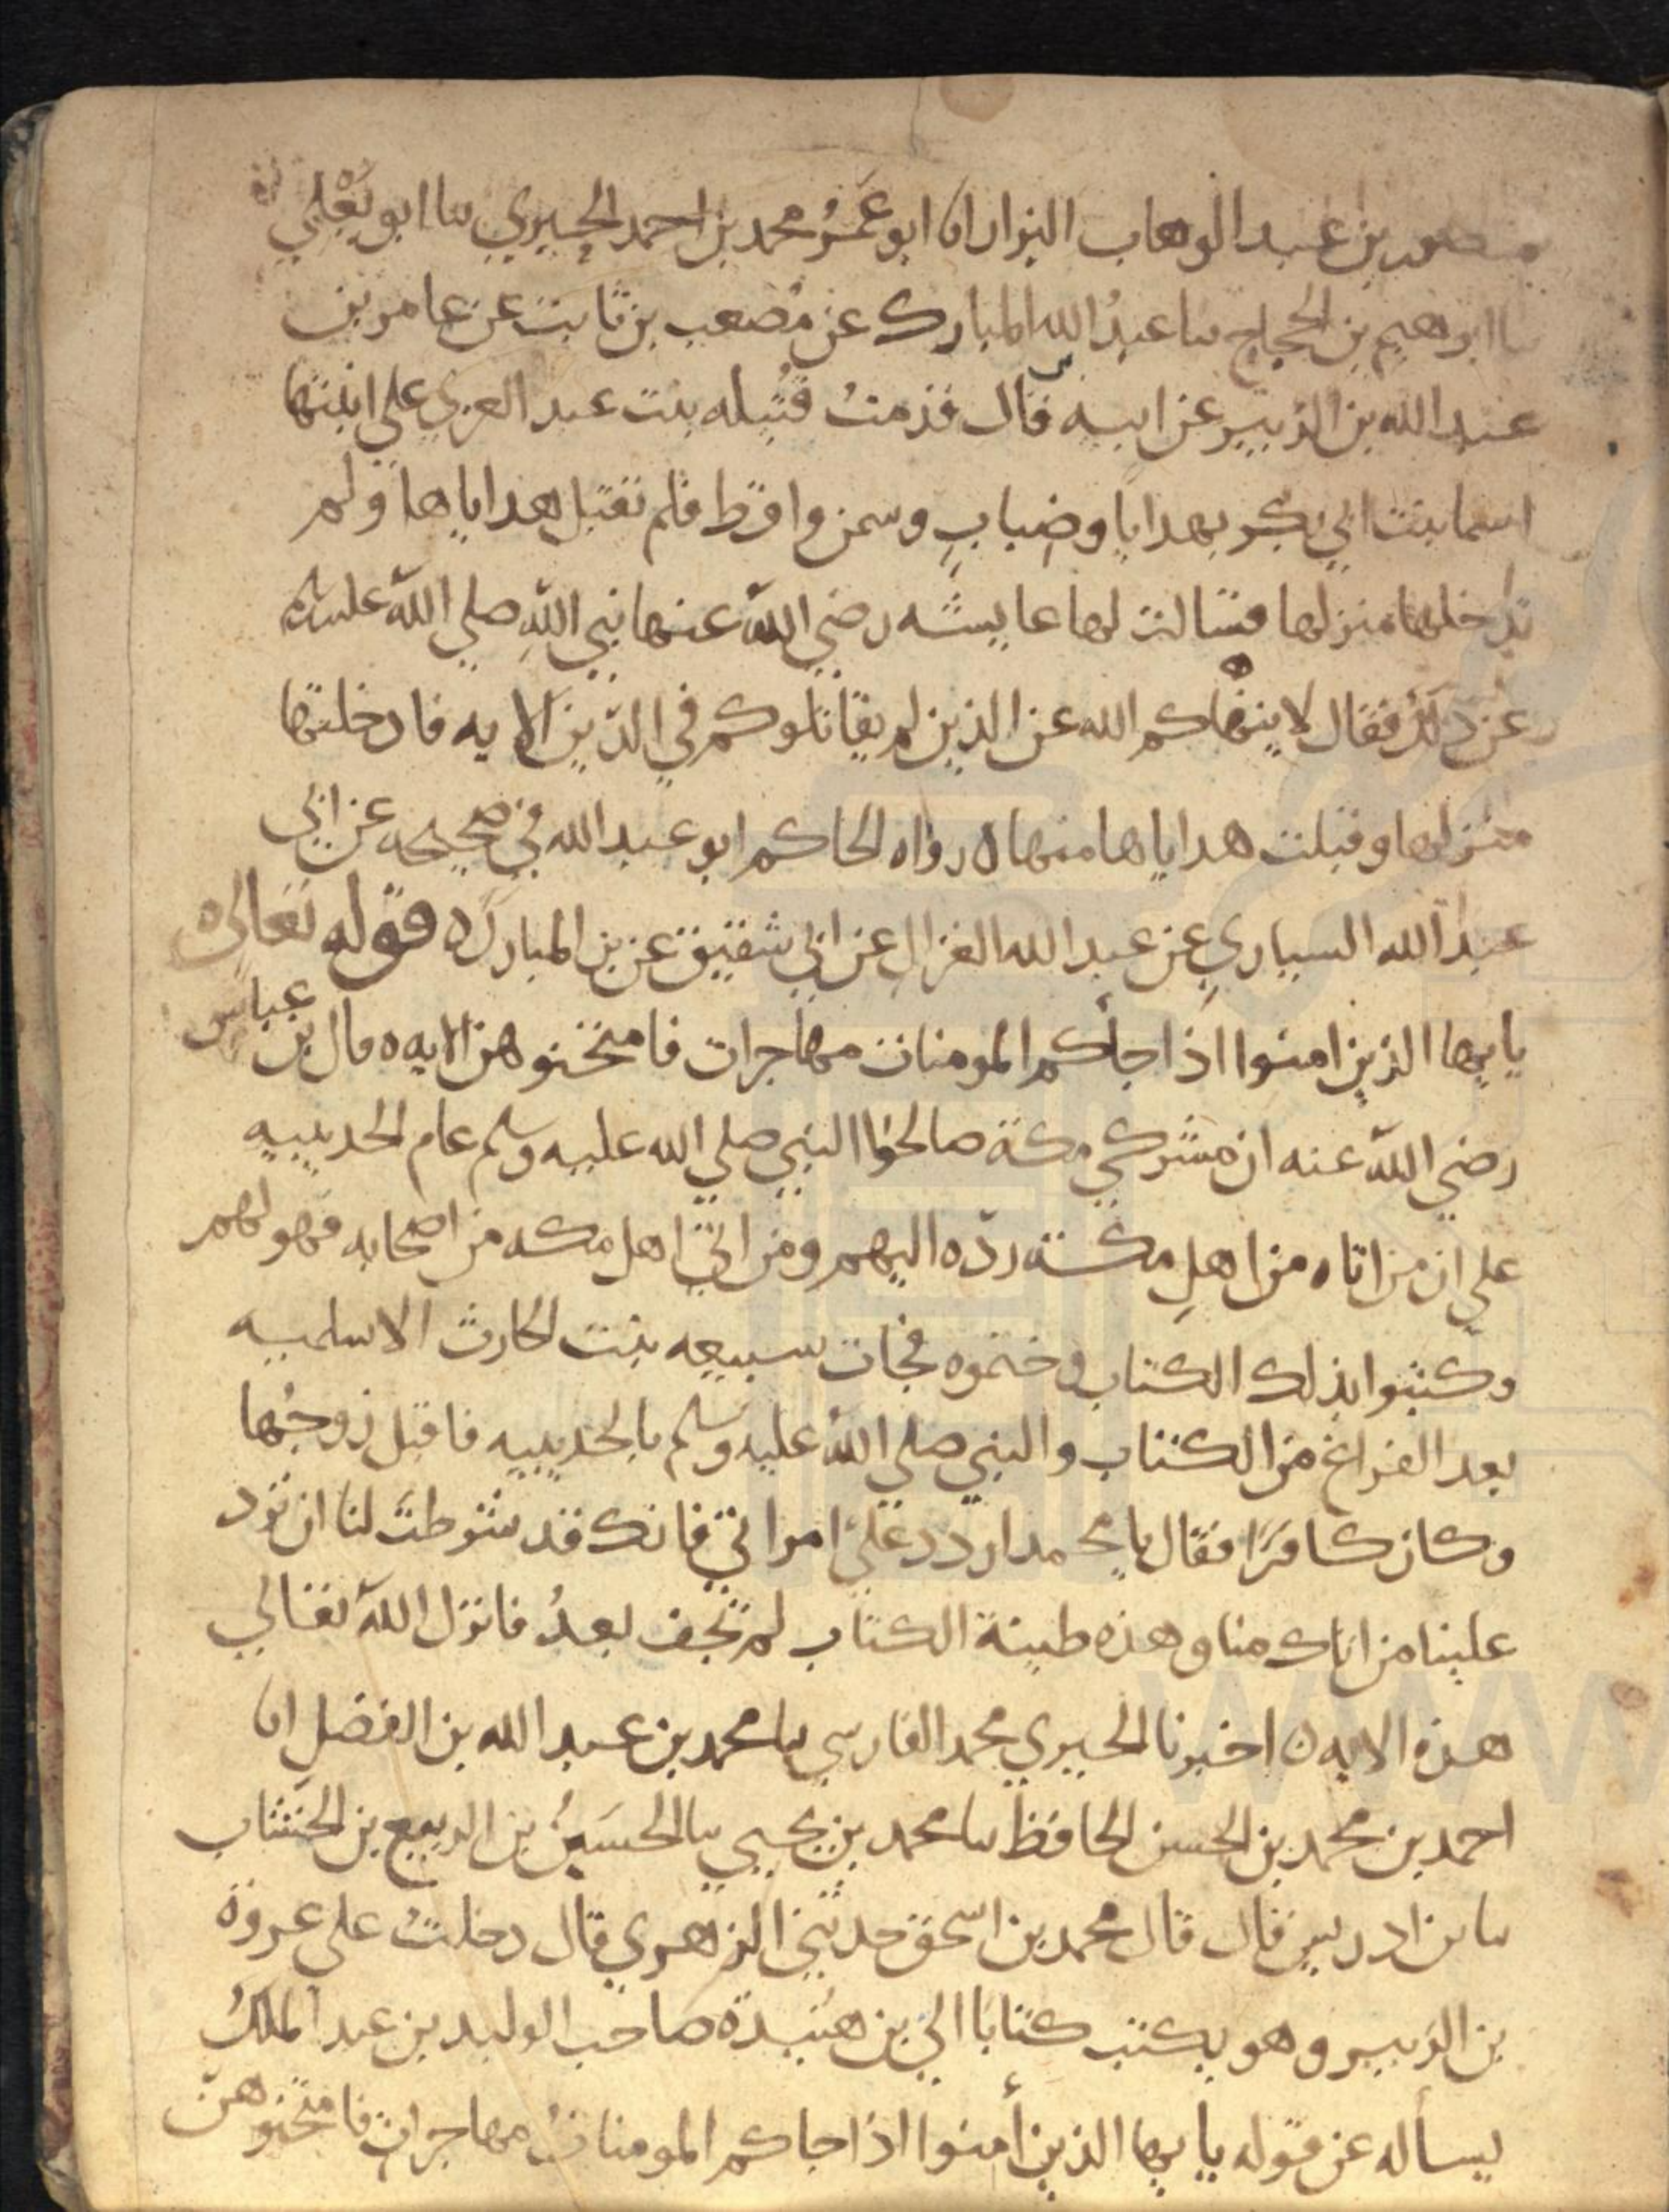 منصور بن عبد الوهاب البزار انا ابو عَمرُو محمد بن احمد الحيري سا ابو يَعْلي
سا ابرهيم بن الحجاج سا عبدُ الله المبارك عن مُصعب بن ثابت عن عامر بن
عبد الله بن الزبير عن ابيه قال قدمتْ قُتيله بنت عبد العزي علي ابنتها
اسما بنت ابي بكر بهدايا وضِبابٍ وسمن واقط فلم تقبل هداياها ولم
تدخلها منزلها فسالت لها عايشه رضي اللّه عنها نبي اللّهِ صلي اللّه عليه وسلم
عن ذلك فقال لا ينهاكم الله عن الذين لم يقاتلوكم في الدّين الايه فادخلتها
منزلها وقبلت هداياها منها ه رواه الحاكم ابو عبد الله في صحيحه عن ابي
عبد الله السياري عن عبد الله الغزال عن ابي شقيق عن بن المبارك ه قوله تعالي ه
يايها الذين امنوا اذا جأكم المومنات مهاجرات فامتحنوهن الايه ه قال بن عباس
رضي اللّه عنه ان مشركي مكة صالحوا النبي صلي الله عليه وسلم عام الحديبيه
علي ان من اتاه من اهلِ مكة ردّه اليهم ومن اتي اهل مكه من اصحابه فهو لهم
وكتبوا بذلك الكتاب وختموه فجات سبيعه بنت الحارث الاسلميه
بعد الفراغ من الكتاب والنبي صلي اللّه عليه وسلم بالحديبيه فاقبل زوجُها
وكان كافرًا فقال يا محمد اردد عليَّ امراتي فانك قد شرطتَ لنا ان ترد
علينا من اتاك منا وهذه طينة الكتاب لم تجف بعدُ فانزل اللّه تعالي
هذه الايه ه اخبرنا الحيري محمد الفارسي سا محمد بن عبد الله بن الفضل انا
احمد بن محمد بن الحسن الحافظ سا محمد بن يحيي سا الحسَينُ بن الربيع بن الخشاب
سا بن ادريس قال قال محمد بن اسحق حدثني الزهري قال دخلتُ علي عروة
بن الزبير وهو يكتب كتابا الي بن هُنيدة صاحب الوليد بن عبد الملكُ
يسأله عن قوله يايها الذين أمنوا اذا جاكم المومناتُ مهاجراتٍ فامتحنوهنّ